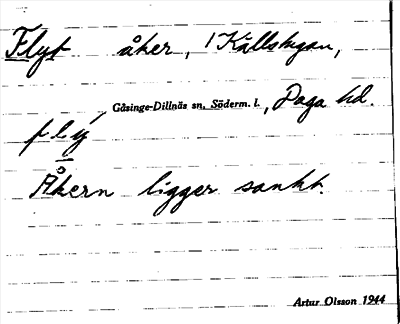 Flyt åker, 1 Källstugan,
Gåsinge-Dillnäs sn, Söderm. l., Daga hd.
flý
Åkern ligger sankt.
Artur Olsson 1944